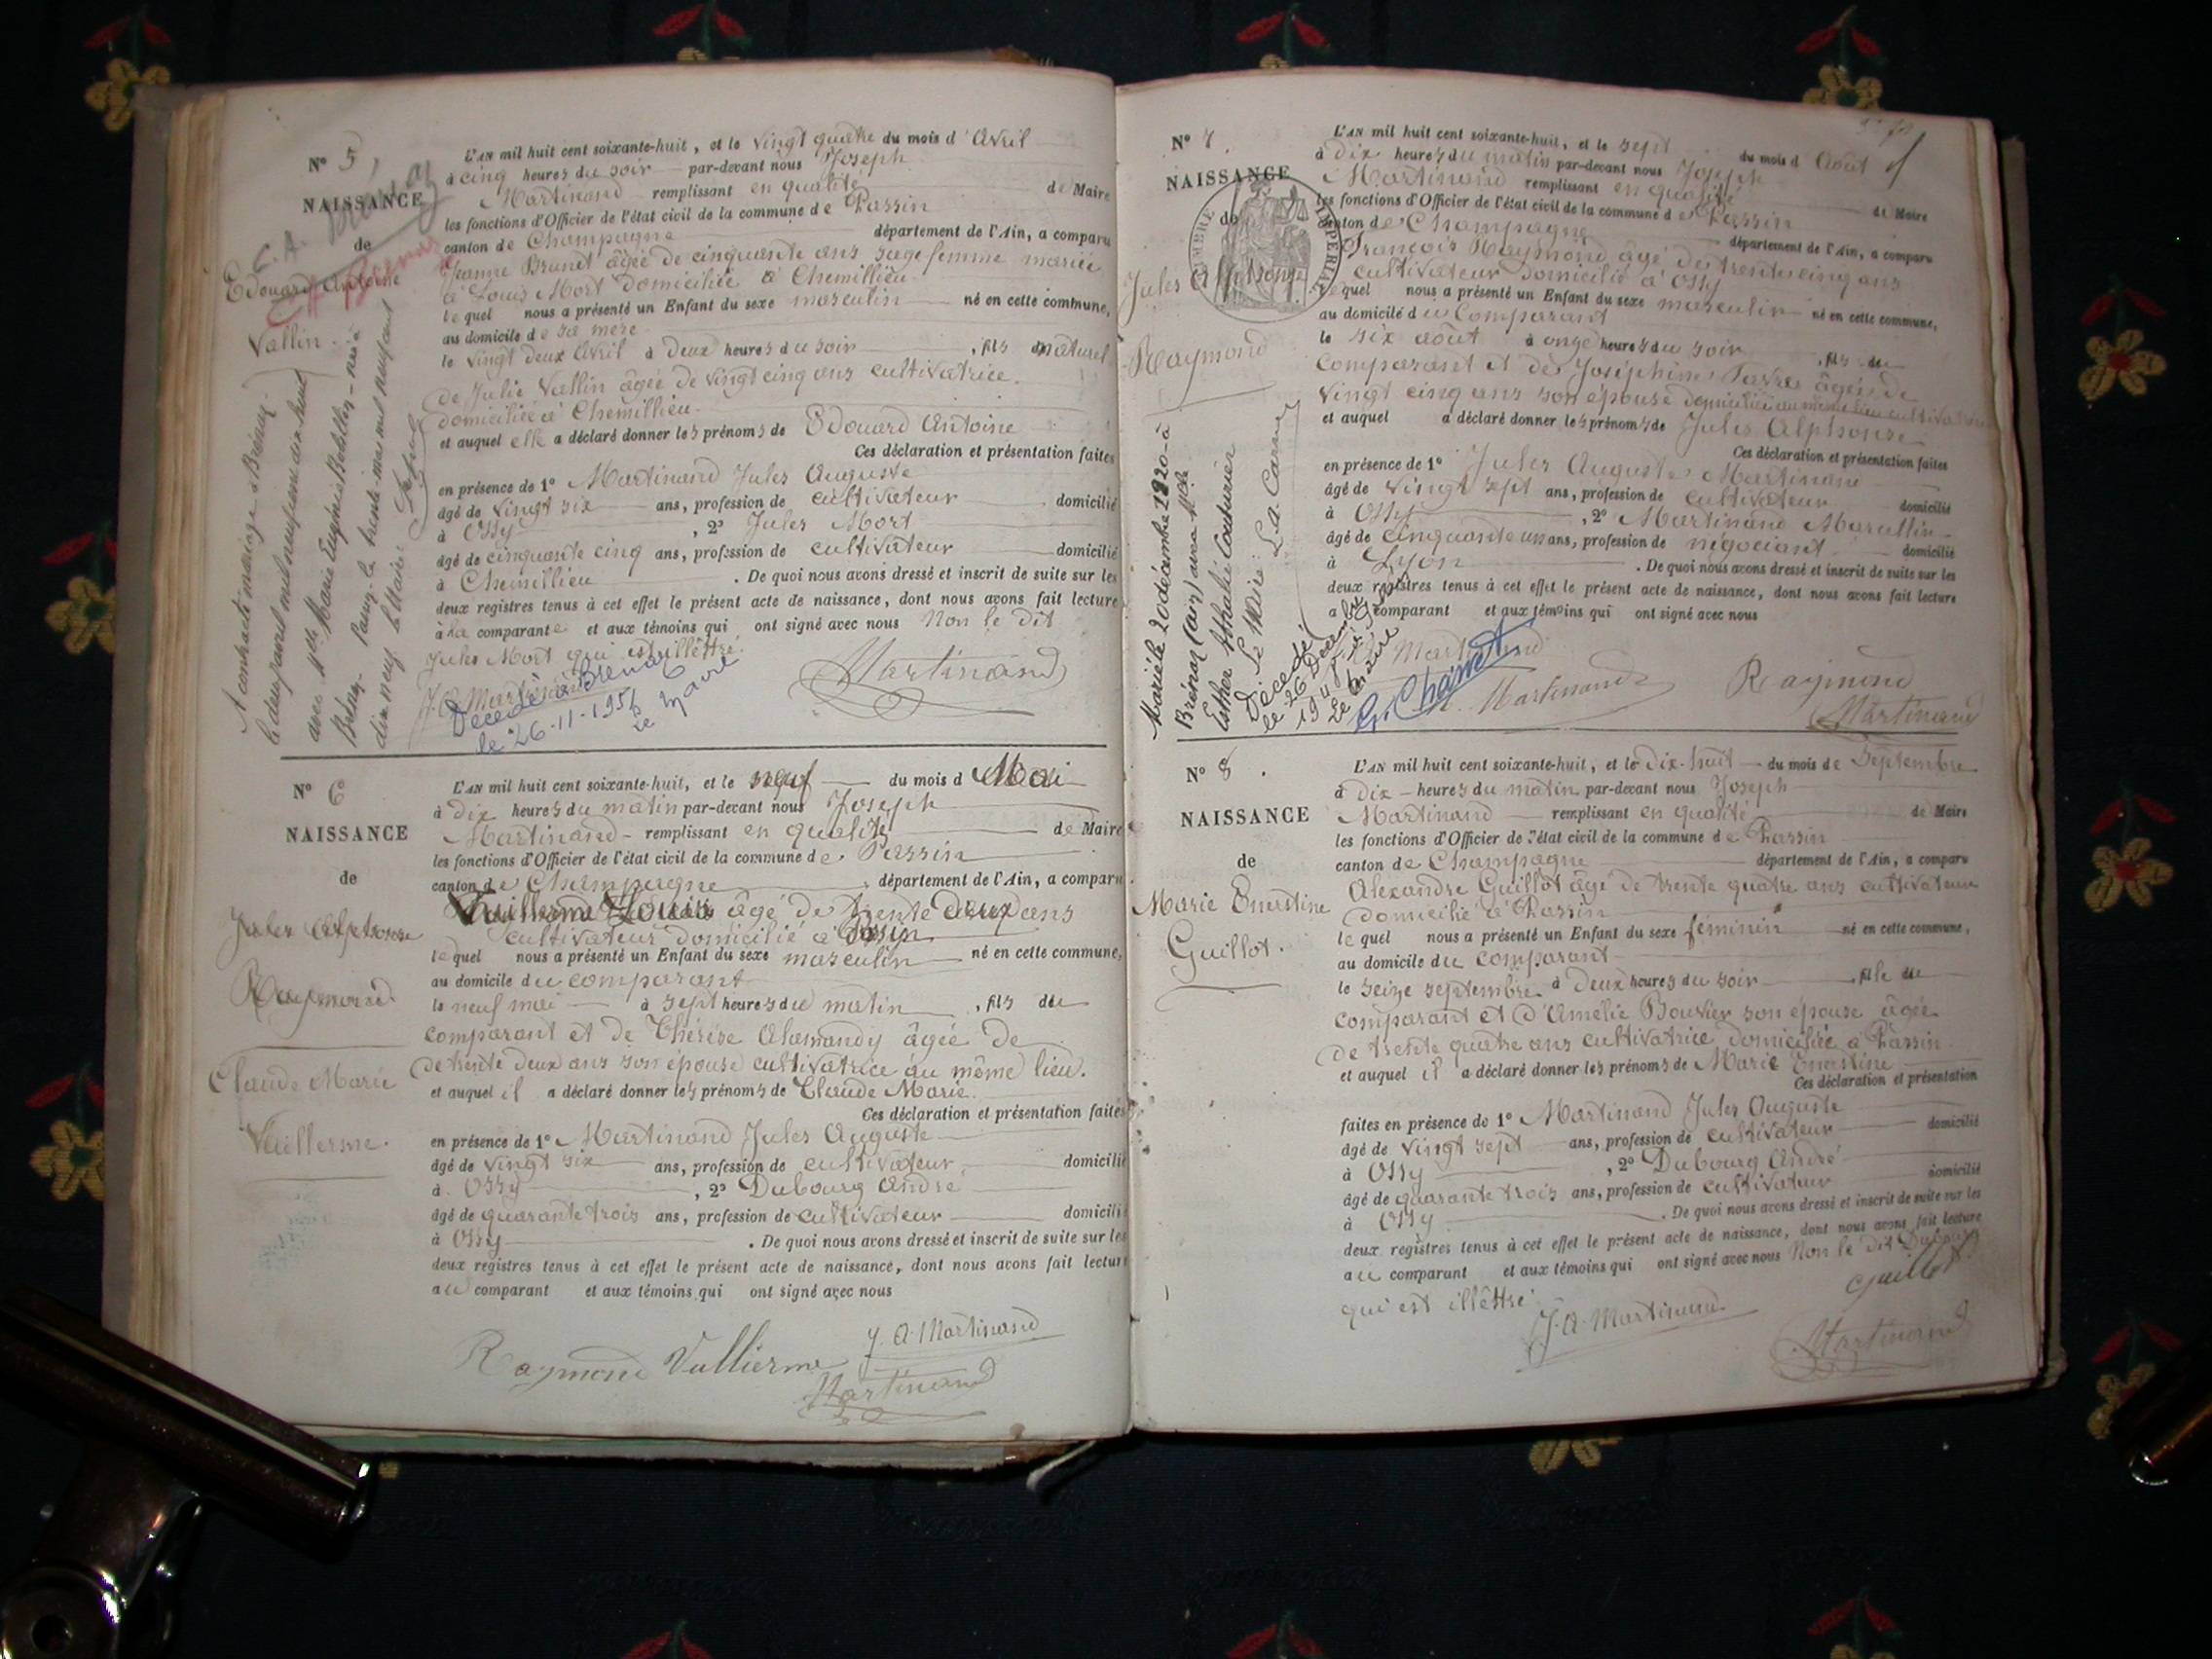 N° 5,
NAISSANCE
de
Edouard Antoine
Vallin.
A contracté mariage à Brénaz.
le deux janvier mil neuf cent dix neuf
avec Melle Marie Eugénie
Passin le trente mai mil neuf cent
dix neuf le Maire
L'AN mil huit cent soixante-huit, et le vingt quatre du mois d'Avril
à cinq heures du soir par-devant nous Joseph
Martinand remplissant en qualité de Maire
les fonctions d'Officier de l'état civil de la commune de Passin
canton de Champagne département de l'Ain, a comparu
Jeanne Brunet âgée de cinquante ans sage femme mariée
à Louis Mort domiciliée à Chemillieu
lequel nous a présenté un Enfant du sexe masculin né en cette commune,
au domicile de sa mère
le vingt deux Avril à deux heures du soir, fils naturel
de Julie Vallin âgée de vingt cinq ans cultivatrice.
domiciliée à Chemillieu.
et auquel elle a déclaré donner les prénoms de Edouard Antoine
Ces déclaration et présentation faites
en présence de 1° Martinand Jules Auguste
âgé de vingt six ans, profession de cultivateur domicilié
à Ossy, 2° Jules Mort
âgé de cinquante cinq ans, profession de cultivateur domicilié
à Chemillieu. De quoi nous avons dressé et inscrit de suite sur les
deux registres tenus à cet effet le présent acte de naissance, dont nous avons fait lecture
à la comparante et aux témoins qui ont signé avec nous Non le dit
Jules Mort qui est illéttré.
J. A. Martinand
Martinand
Décédé à Brénaz
le 26-11-195
le Maire
N° 6
NAISSANCE
de
Jules Alphonse
Raymond.
Claude Marie
Vuillerme.
L'AN mil huit cent soixante-huit, et le neuf du mois d Mai
à dix heures du matin par-devant nous Joseph
Martinand - remplissant en qualité de Maire
les fonctions d'Officier de l'état civil de la commune de Passin
canton de Champagne, département de l'Ain, a comparu
Vuillerme Louis âgé de trente deux ans
cultivateur domicilié à Passin
lequel nous a présenté un Enfant du sexe masculin né en cette commune,
au domicile du comparant
le neuf mai à sept heures du matin, fils du
comparant et de Thérèse âgée de
de trente deux ans son épouse cultivatrice au même lieu.
et auquel il a déclaré donner les prénoms de Claude Marie.
Ces déclaration et présentation faites
en présence de 1° Martinand Jules Auguste
âgé de vingt six ans, profession de cultivateur domicilié
à Ossy, 2° Dubourg André
âgé de quarante trois ans, profession de cultivateur domicilié
à Ossy. De quoi nous avons dressé et inscrit de suite sur les
deux registres tenus à cet effet le présent acte de naissance, dont nous avons fait lecture
au comparant et aux témoins qui ont signé avec nous
Raymond Vullierme J. A. Martinand
Martinand
N° 7.
NAISSANCE
de
TIMBRE IMPERIAL
Jules Alphonse
Raymond
Marié le 20 décembre 1920 à
Brénaz (Ain) avec Melle
Esther Athalie Couturier
Le Maire
Décédé
le 26 Décembre
Le Maire
L'AN mil huit cent soixante-huit, et le sept du mois d Août
à dix heures du matin par-devant nous Joseph
Martinand remplissant en qualité de Maire
les fonctions d'Officier de l'état civil de la commune de Passin
canton de Champagne département de l'Ain, a comparu
François Raymond âgé de trente cinq ans
cultivateur domicilié à Ossy
lequel nous a présenté un Enfant du sexe masculin né en cette commune,
au domicile du Comparant
le six août à onze heures du soir, fils du
comparant et de Joséphine âgée de
vingt cinq ans son épouse domiciliée au même lieu cultivatrice
et auquel a déclaré donner les prénoms de Jules Alphonse
Ces déclaration et présentation faites
en présence de 1° Jules Auguste Martinand
âgé de vingt sept ans, profession de cultivateur domicilié
à Ossy, 2° Martinand Marcellin
âgé de cinquante un ans, profession de négociant domicilié
à Lyon. De quoi nous avons dressé et inscrit de suite sur les
deux registres tenus à cet effet le présent acte de naissance, dont nous avons fait lecture
au comparant et aux témoins qui ont signé avec nous
Martinand Raymond
Martinand
N° 8.
NAISSANCE
de
Marie Ernestine
Guillot.
L'AN mil huit cent soixante-huit, et le dix-huit du mois de Septembre
à dix - heures du matin par-devant nous Joseph
Martinand remplissant en qualité de Maire
les fonctions d'Officier de l'état civil de la commune de Passin
canton de Champagne département de l'Ain, a comparu
Alexandre Guillot âgé de trente quatre ans cultivateur
domicilié à Passin
lequel nous a présenté un Enfant du sexe féminin né en cette commune,
au domicile du comparant
le seize septembre à deux heures du soir, fille du
comparant et d'Amélie Bouvier son épouse âgée
de trente quatre ans cultivatrice domiciliée à Passin
et auquel il a déclaré donner les prénoms de Marie Ernestine
Ces déclaration et présentation
faites en présence de 1° Martinand Jules Auguste
âgé de vingt sept ans, profession de cultivateur domicilié
à Ossy, 2° Dubourg André
âgé de quarante trois ans, profession de cultivateur domicilié
à Ossy. De quoi nous avons dressé et inscrit de suite sur les
deux registres tenus à cet effet le présent acte de naissance, dont nous avons fait lecture
au comparant et aux témoins qui ont signé avec nous Non le dit Dubourg
qui est illéttré. Guillot
J. A. Martinand
Martinand